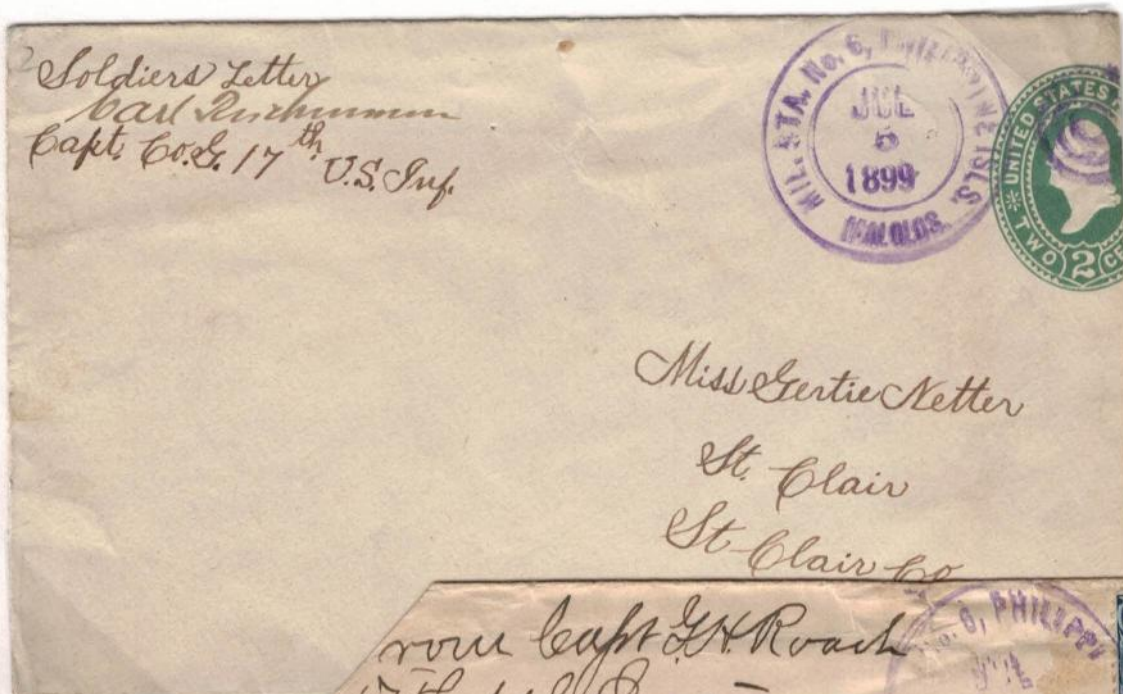 Soldiers' Letter
Carl
Capt. Co. G. 17th U.S. Inf.
MIL. STA. No. 6, PHILIPPINE ISLS.
JUL
5
1899
MALOLOS.
UNITED STATES
TWO 2 CE
Miss Gertie Netter
St. Clair
St Clair Co
rom Capt G.H. Roach
No. 6, PHILIPPI